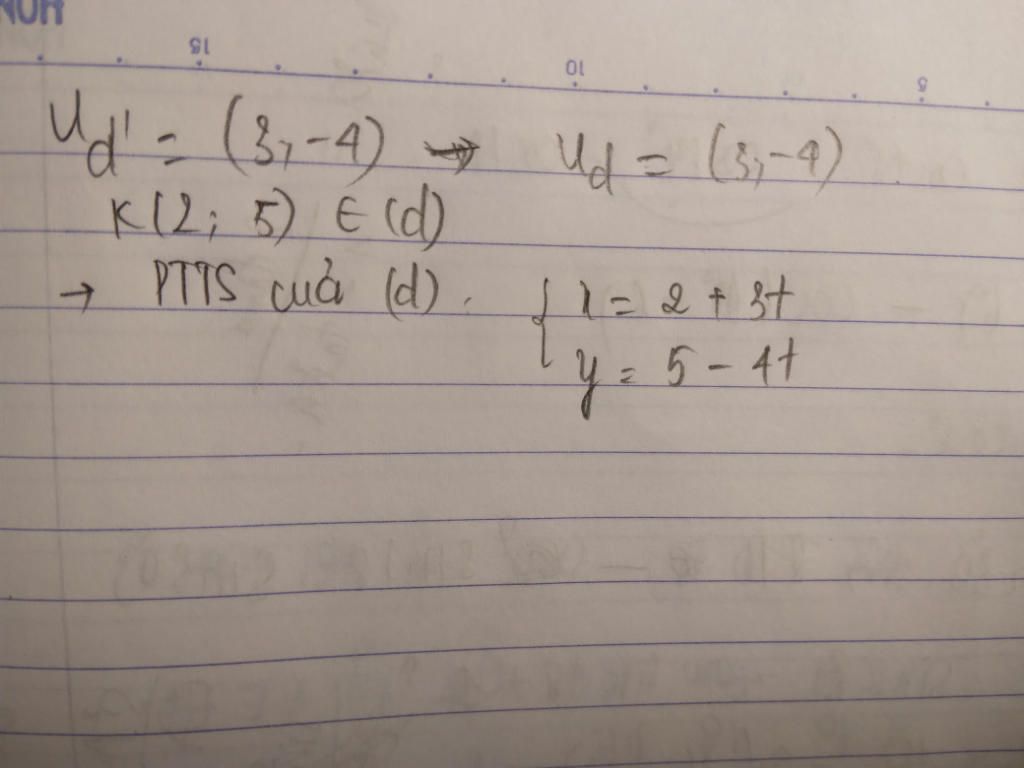 15 10 5
u_d' = (3, -4) → u_d = (3, -4)
K(2; 5) ∈ (d)
→ PTTS của (d). { x = 2 + 3t
y = 5 - 4t